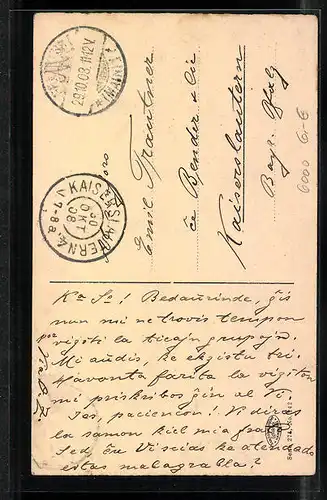 29.10.08.11-12V.
KAISERSLAUTERN 4.
30
OKT
08
V 7-8
Emil Trautner
Bender
Kaiserslautern
Bayr. Pfalz
Kª Sº! Bedaŭrinde, ĝis
nun mi ne trovis tempon
viziti la tieajn grupojn.
Mi aŭdis, ke ekzistas tri.
Havonta farita la viziton
mi priskribos ĝin al Vi
Jes, paciencon! Vi diras
la samon kiel mia
Sed, ĉu Vi scias ke atendado
estas malagrabla?